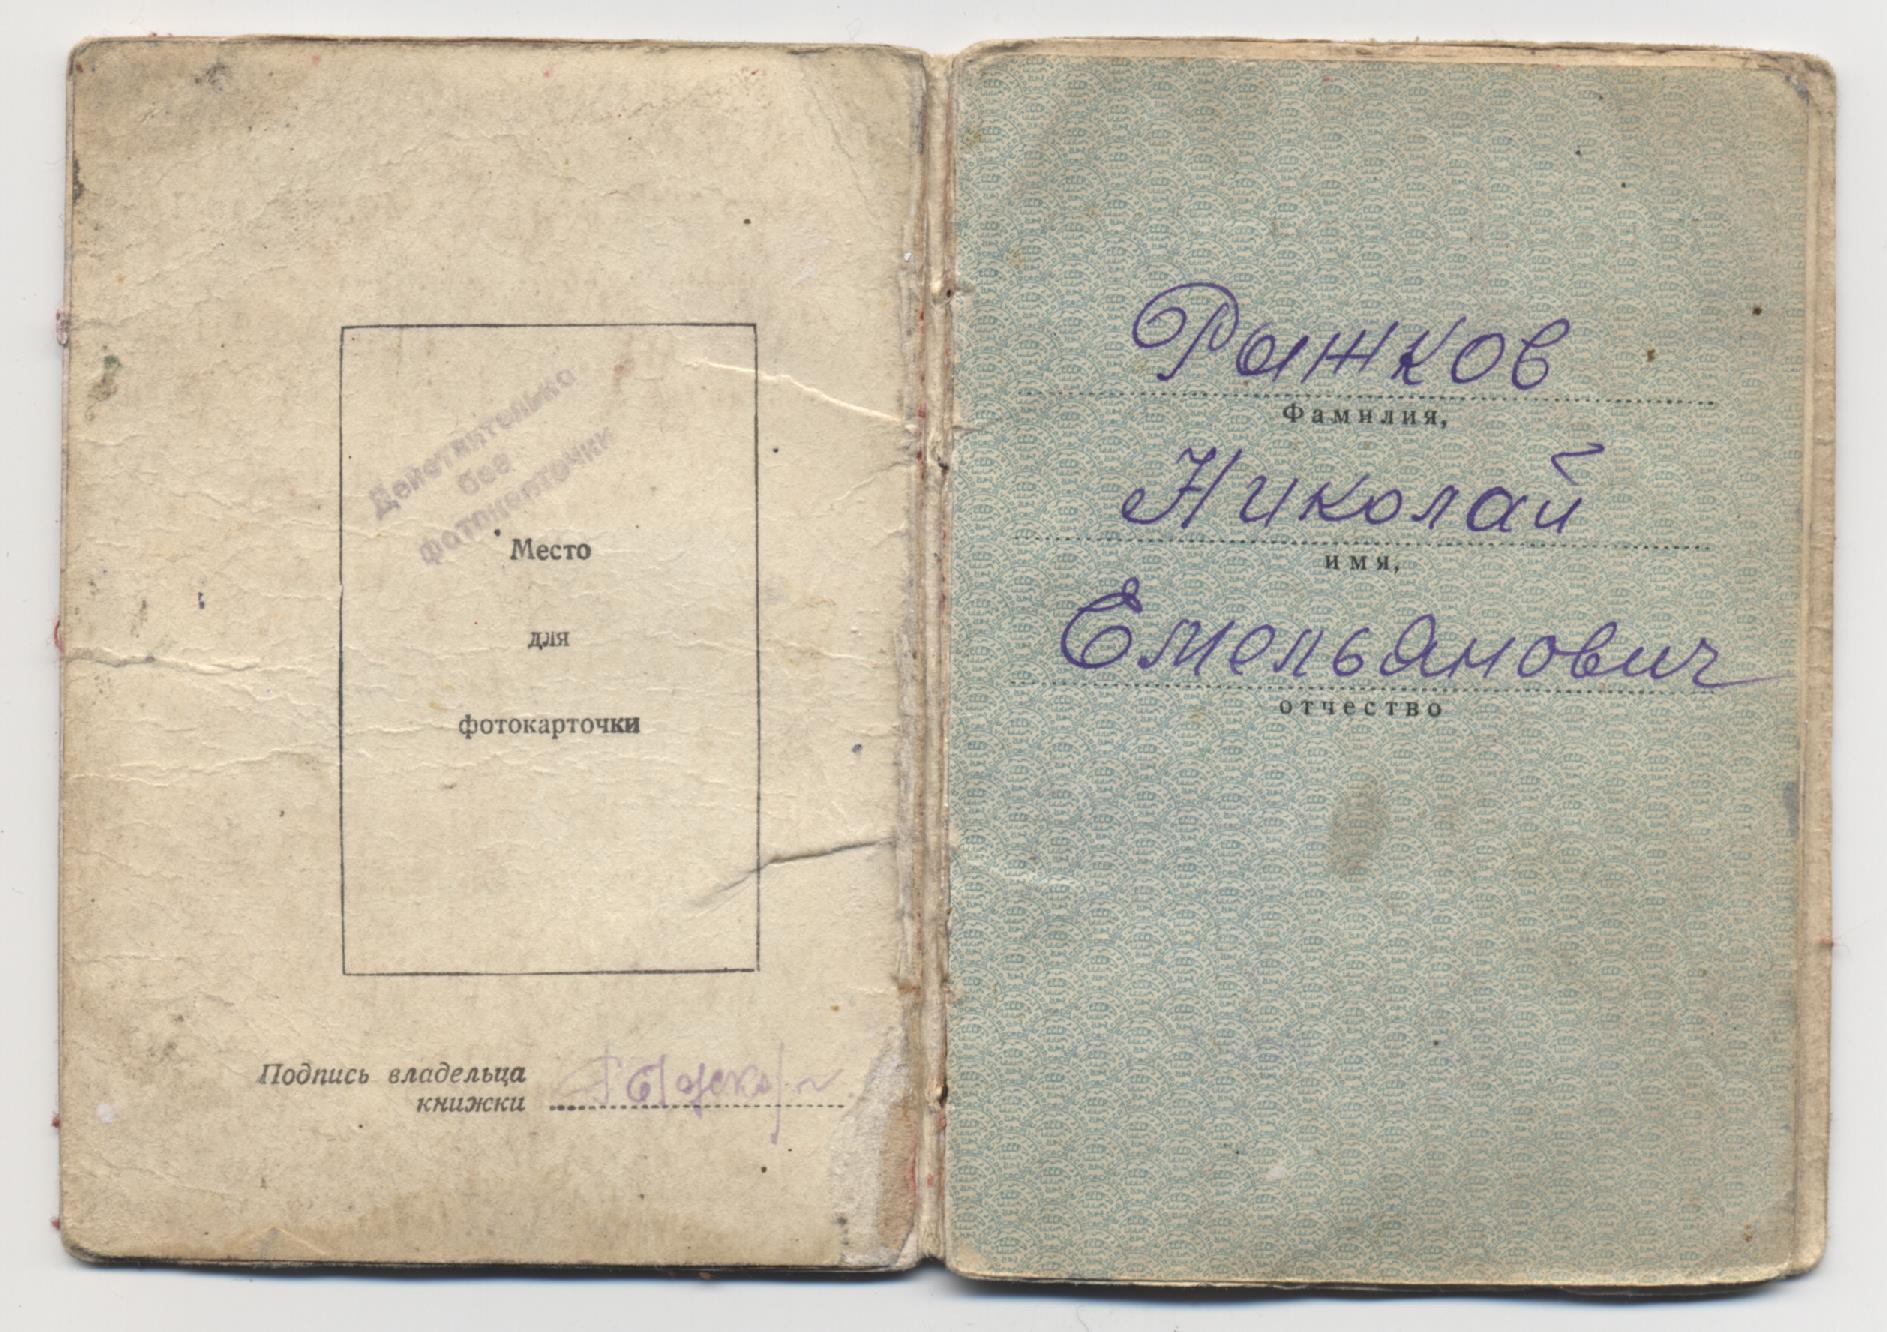 Действительно
без
фотокарточки
Место
для
фотокарточки
Подпись владельца
книжки
Рыжков
Фамилия,
Николай
имя,
Емельянович
отчество